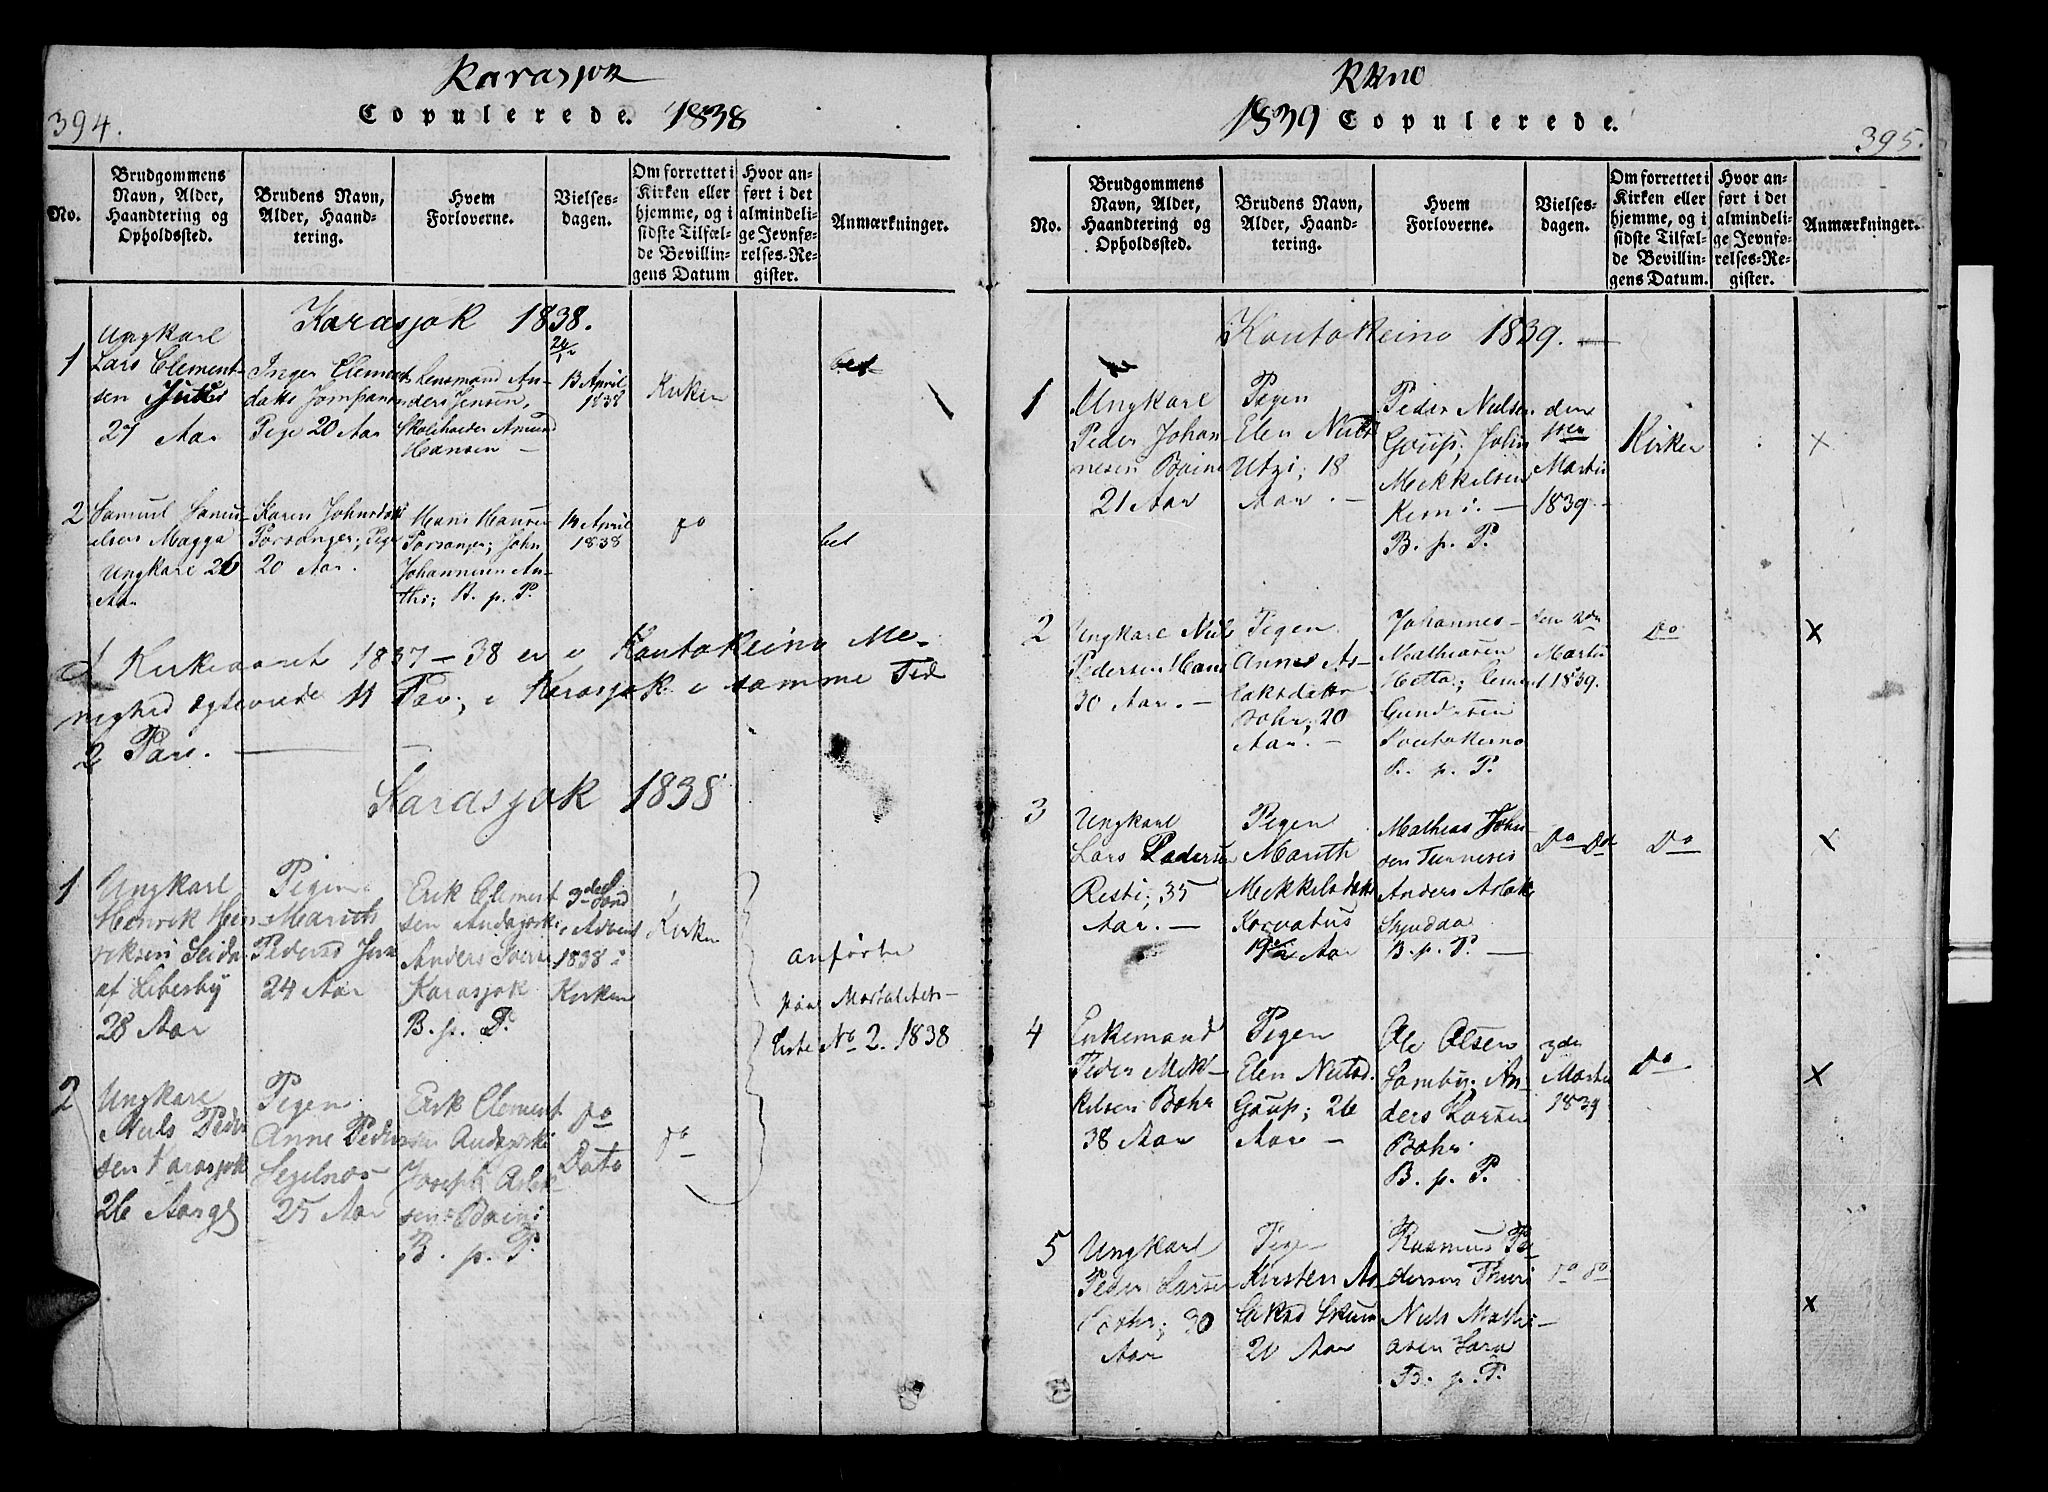 Karasjok
394.
Copulerede. 1838
No.
Brudgommens
Navn, Alder,
Haandtering og
Opholdssted.
Brudens Navn,
Alder, Haand-
tering.
Hvem
Forloverne.
Vielses-
dagen.
Om forrettet i
Kirken eller
hjemme, og i
sidste Tilfæl-
de Bevillin-
gens Datum
Hvor an-
ført i det
almindeli-
ge Jevnfø-
relses-Re-
gister.
Anmærkninger.
Karasjok 1838.
1
Ungkarl
Lars Clement-
sen
27 Aar
Inger Clements
datter
Pige 20 Aar
Lensmand An-
ders Jensen,
Skoleholder Amund
Hansen –
13 April
1838
Kirken
bet
2
Samuel Samu-
elsen Magga
Ungkarl 26
Aar
Karen Johnsdatt
Porsanger; Pige
20 Aar.
Hans Hansen
Porsanger; John
Johannesen An-
thi; B. p. P.
14 April
1838
do
bet
I Kirkeaaret 1837–38 er i Koutokeino Me-
nighed ægteviede 11 Par; i Karasjok i samme Tid
2 Par. –
Karasjok 1838
1
Ungkarl
Henrik Hen-
riksen Seida
af Lebesby
28 Aar
Pigen
Marith
Pedersd
24 Aar
Erik Clement
sen Andagorki
Anders
Karasjok
B. p. P.
3die Sønd
i Advent
1838 i
Kirken
Kirken
anførte
paa Mortalitets-
Liste No 2. 1838
2
Ungkarl
Niels Peder
sen Karasjok
26 Aar gl
Pigen
Anne Peders
Segelnæs
25 Aar
Erik Clement
sen Andagorki
Joseph Aslak
sen Baini
B. p. P.
do
Dato
do
KKno
1839 Copulerede.
395.
No.
Brudgommens
Navn, Alder,
Haandtering og
Opholdssted.
Brudens Navn,
Alder, Haand-
tering.
Hvem
Forloverne.
Vielses-
dagen.
Om forrettet i
Kirken eller
hjemme, og i
sidste Tilfæl-
de Bevillin-
gens Datum.
Hvor an-
ført i det
almindeli-
ge Jevnfø-
relses-Re-
gister.
Anmærkninger.
Koutokeino 1839. –
1
Ungkarl
Peder Johan-
nesen Baine
21 Aar
Pigen
Elen Nielsd
Utzi; 18
Aar. –
Peder Nielsen
Goup; John
Mekkelsen
Kemi. –
B. p. P.
den
Martii
1839. –
Kirken
x
2
Ungkarl Niels
Pedersen
30 Aar. –
Pigen
Anne As-
laksdatter
Bohr; 20
Aar. –
Johannes
Mathiasen
Hetta; Clement
Gundersen
Koutokeino
B. p. P.
den 2den
Martii
1839.
Do
x
3
Ungkarl
Lars Pedersen
Resti; 35
Aar. –
Pigen
Marith
Mekkelsdatter
Korvatus
19 1/2 Aar
Mathias John
sen Turneses
Anders Aslak
B. p. P. –
Do Do
Do
x
4
Enkemand
Peder Mek-
kelsen Bohr
38 Aar
Pigen
Elen Nielsd.
Goup; 26
Aar –
Ole Olsen
Somby; An
ders Larsen
Bohr
B. p. P.
3die
Martii
1839
Do
x
5
Ungkarl
Peder Larsen
30
Aar
Pigen
Kirsten As-
laksd Skum
20 Aar
Rasmus Pe-
dersen Thuri
Niels Mathi-
asen Sara
B. p. P.
do do
x